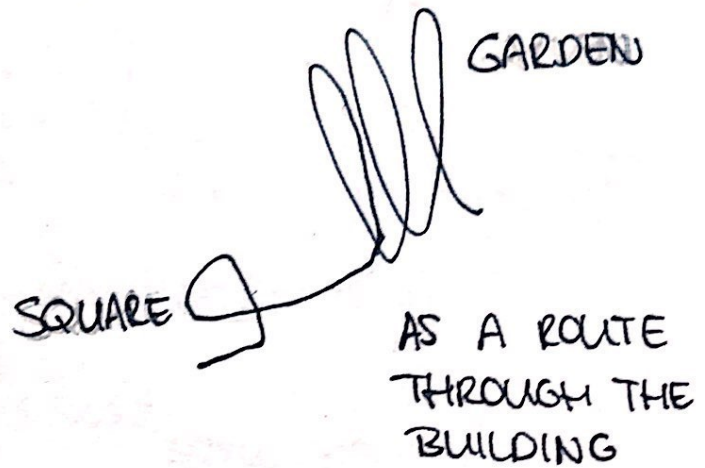 GARDEN
SQUARE
AS A ROUTE
THROUGH THE
BUILDING